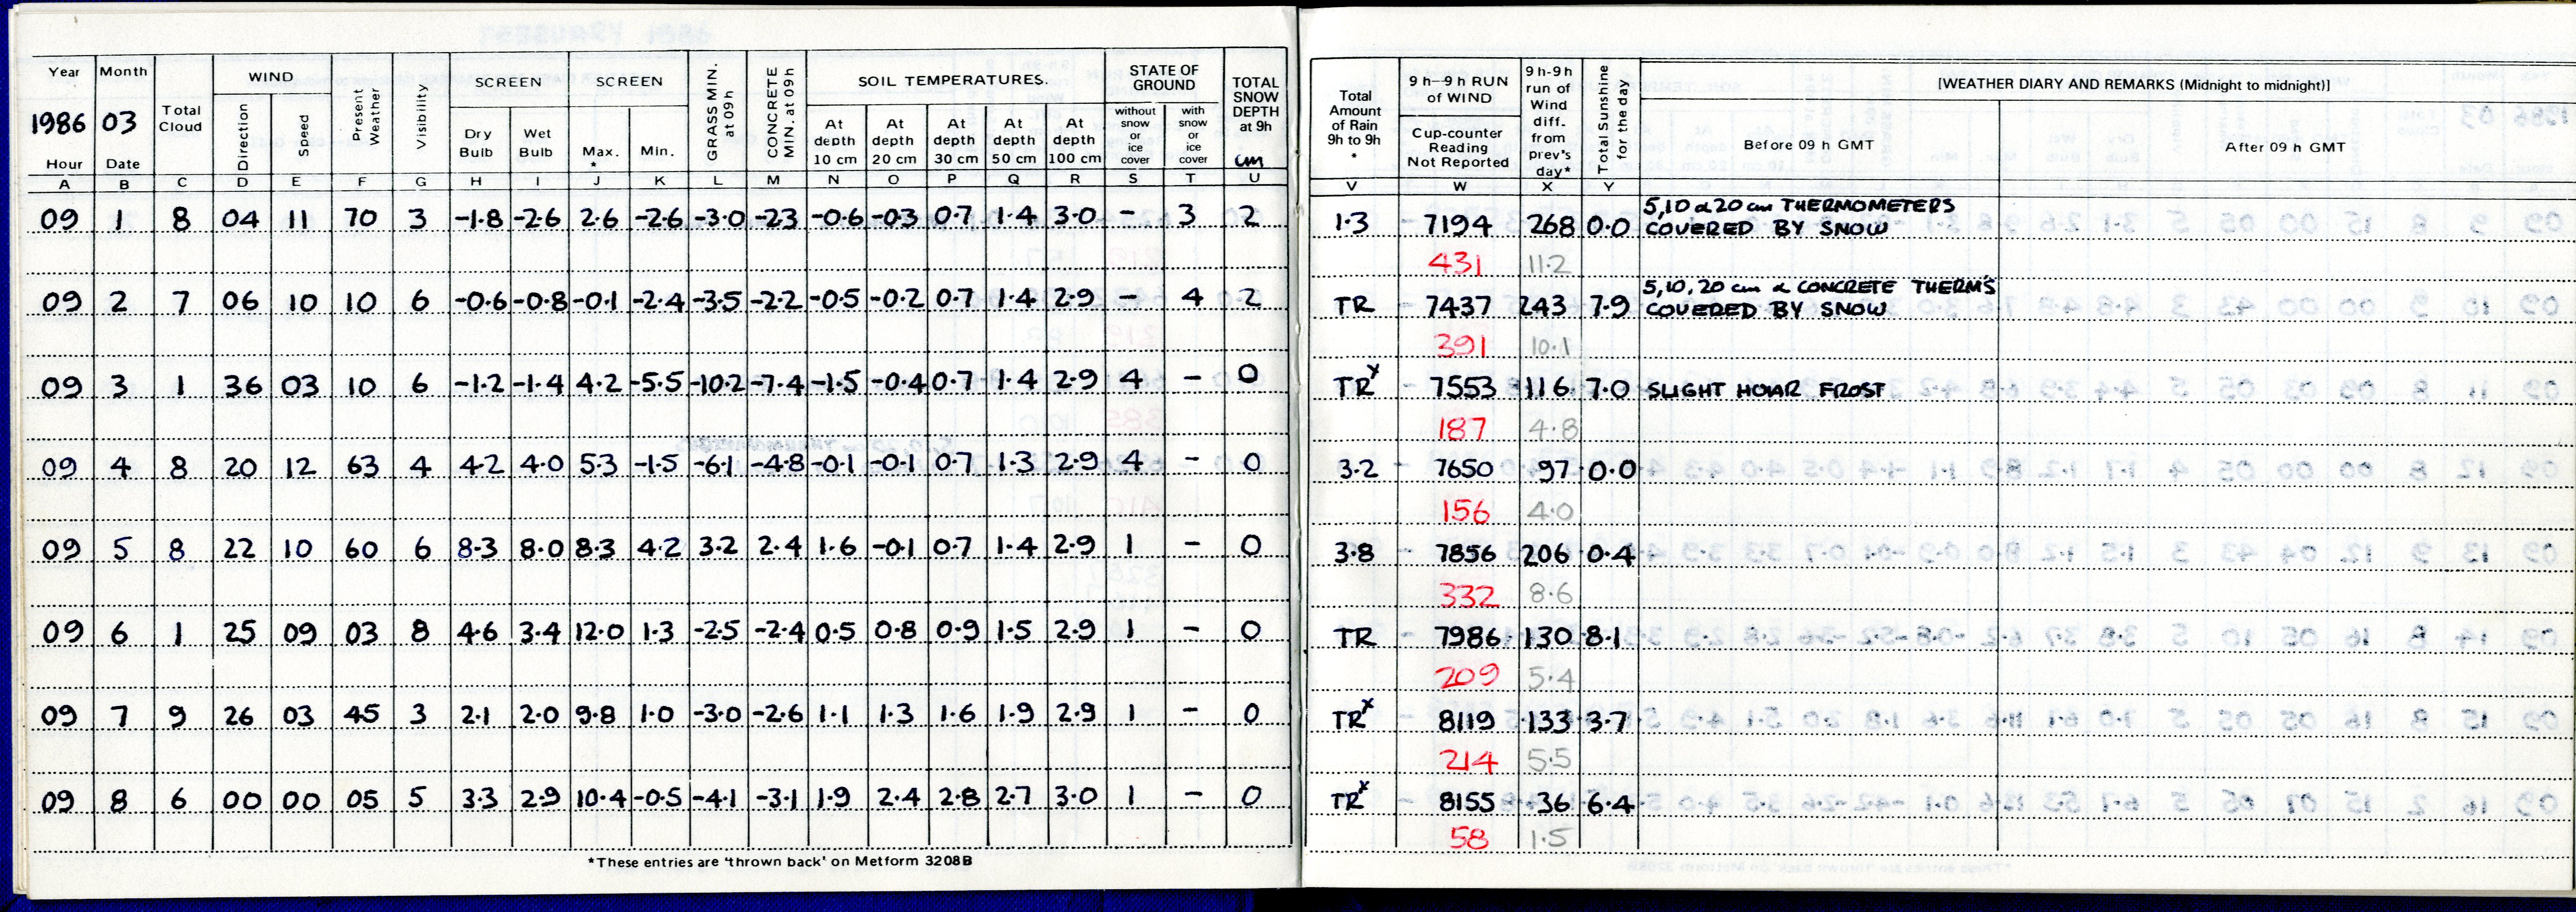 Year Month Total Cloud WIND Present Weather Visibility SCREEN SCREEN GRASS MIN. at 09h CONCRETE MIN. at 09h SOIL TEMPERATURES. STATE OF GROUND TOTAL SNOW DEPTH at 9h cm
1986 03 Direction Speed Dry Bulb Wet Bulb Max. * Min. At depth 10 cm At depth 20 cm At depth 30 cm At depth 50 cm At depth 100 cm without snow or ice cover with snow or ice cover
Hour Date
A B C D E F G H I J K L M N O P Q R S T U
09 1 8 04 11 70 3 -1.8 -2.6 2.6 -2.6 -3.0 -2.3 -0.6 -0.3 0.7 1.4 3.0 - 3 2
09 2 7 06 10 10 6 -0.6 -0.8 -0.1 -2.4 -3.5 -2.2 -0.5 -0.2 0.7 1.4 2.9 - 4 2
09 3 1 36 03 10 6 -1.2 -1.4 4.2 -5.5 -10.2 -7.4 -1.5 -0.4 0.7 1.4 2.9 4 - 0
09 4 8 20 12 63 4 4.2 4.0 5.3 -1.5 -6.1 -4.8 -0.1 -0.1 0.7 1.3 2.9 4 - 0
09 5 8 22 10 60 6 8.3 8.0 8.3 4.2 3.2 2.4 1.6 -0.1 0.7 1.4 2.9 1 - 0
09 6 1 25 09 03 8 4.6 3.4 12.0 1.3 -2.5 -2.4 0.5 0.8 0.9 1.5 2.9 1 - 0
09 7 9 26 03 45 3 2.1 2.0 9.8 1.0 -3.0 -2.6 1.1 1.3 1.6 1.9 2.9 1 - 0
09 8 6 00 00 05 5 3.3 2.9 10.4 -0.5 -4.1 -3.1 1.9 2.4 2.8 2.7 3.0 1 - 0
*These entries are 'thrown back' on Metform 3208B
Total Amount of Rain 9h to 9h * 9 h-9 h RUN of WIND 9 h-9 h run of Wind diff. from prev's day* Total Sunshine for the day [WEATHER DIARY AND REMARKS (Midnight to midnight)]
Cup-counter Reading Not Reported Before 09 h GMT After 09 h GMT
V W X Y
5,10 & 20 cm THERMOMETERS
1.3 7194 268 0.0 COVERED BY SNOW
431 11.2
5,10,20 cm & CONCRETE THERM'S
TR 7437 243 7.9 COVERED BY SNOW
391 10.1
TRx 7553 116 7.0 SLIGHT HOAR FROST
187 4.8
3.2 7650 97 0.0
156 4.0
3.8 7856 206 0.4
332 8.6
TR 7986 130 8.1
209 5.4
TRx 8119 133 3.7
214 5.5
TRx 8155 36 6.4
58 1.5